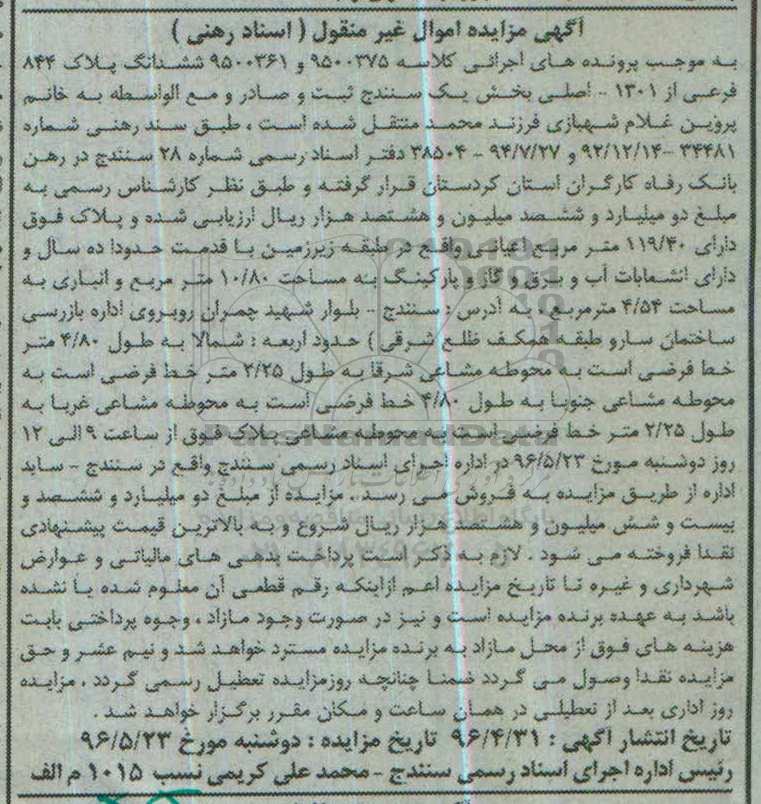 آگهی مزایده اموال غیر منقول ( اسناد رهنی )
به موجب پرونده های اجرائی کلاسه ۹۵۰۰۳۷۵ و ۹۵۰۰۳۶۱ ششدانگ پلاک ۸۴۴
فرعی از ۱۳۰۱ - اصلی بخش یک سنندج ثبت و صادر و مع الواسطه به خانم
پروین غلام شهبازی فرزند محمد منتقل شده است ، طبق سند رهنی شماره
۳۴۴۸۱ - ۹۲/۱۲/۱۴ و ۹۴/۷/۲۷ - ۳۸۵۰۴ دفتر اسناد رسمی شماره ۲۸ سنندج در رهن
بانک رفاه کارگران استان کردستان قرار گرفته و طبق نظر کارشناس رسمی به
مبلغ دو میلیارد و ششصد میلیون و هشتصد هزار ریال ارزیابی شده و پلاک فوق
دارای ۱۱۹/۴۰ متر مربع اعیانی واقع در طبقه زیرزمین با قدمت حدودا ده سال و
دارای انشعابات آب و برق و گاز و پارکینگ به مساحت ۱۰/۸۰ متر مربع و انباری به
مساحت ۴/۵۴ مترمربع ، به آدرس : سنندج - بلوار شهید چمران روبروی اداره بازرسی
ساختمان سارو طبقه همکف ظلع شرقی ) حدود اربعه : شمالا به طول ۴/۸۰ متر
خط فرضی است به محوطه مشاعی شرقا به طول ۲/۲۵ متر خط فرضی است به
محوطه مشاعی جنوبا به طول ۴/۸۰ خط فرضی است به محوطه مشاعی غربا به
طول ۲/۲۵ متر خط فرضی است به محوطه مشاعی پلاک فوق از ساعت ۹ الی ۱۲
روز دوشنبه مورخ ۹۶/۵/۲۳ در اداره اجرای اسناد رسمی سنندج واقع در سنندج - ساید
اداره از طریق مزایده به فروش می رسد . مزایده از مبلغ دو میلیارد و ششصد و
بیست و شش میلیون و هشتصد هزار ریال شروع و به بالاترین قیمت پیشنهادی
نقدا فروخته می شود . لازم به ذکر است پرداخت بدهی های مالیاتی و عوارض
شهرداری و غیره تا تاریخ مزایده اعم ازاینکه رقم قطعی آن معلوم شده یا نشده
باشد به عهده برنده مزایده است و نیز در صورت وجود مازاد ، وجوه پرداختی بابت
هزینه های فوق از محل مازاد به برنده مزایده مسترد خواهد شد و نیم عشر و حق
مزایده نقدا وصول می گردد ضمنا چنانچه روزمزایده تعطیل رسمی گردد ، مزایده
روز اداری بعد از تعطیلی در همان ساعت و مکان مقرر برگزار خواهد شد .
تاریخ انتشار آگهی : ۹۶/۴/۳۱ تاریخ مزایده : دوشنبه مورخ ۹۶/۵/۲۳
رئیس اداره اجرای اسناد رسمی سنندج - محمد علی کریمی نسب ۱۰۱۵ م الف